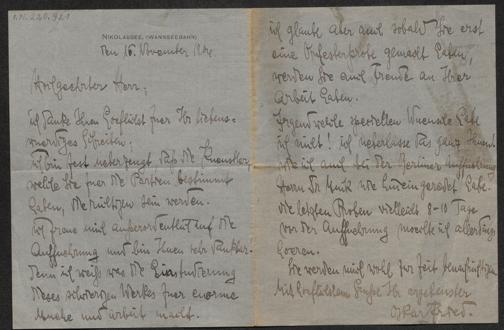 I.N. 220.921
NIKOLASSEE, (WANNSEEBAHN)
den 16. November
Hochgeehrter Herr;
ich danke Ihnen höflichst fuer Ihr liebens-
wuerdiges Schreiben;
ich bin fest ueberzeugt dass die Kuenstler
welche Sie fuer die Partien bestimmt
haben, die richtigen sein werden.
ich freue mich ausserordentlich auf die
Auffuehrung und bin Ihnen sehr dankbar.
denn ich weiss was die Einstudierung
dieses schwierigen Werkes fuer enorme
Muehe und arbeit macht.
ich glaube aber auch sobald Sie erst
eine Orchesterprobe gemacht haben,
werden Sie auch Freude an Ihrer
Arbeit haben.
Irgend welche speziellen Wuensche habe
ich nicht! ich ueberlasse das ganz Ihnen
wie ich auch bei der Berliner Auffuehrung
Herrn nie hineingeredet habe.
die letzten Proben vielleicht 8-10 Tage
vor der Auffuehrung moechte ich allerdings
hoeren.
Sie werden mich wohl zur Zeit benachrichtigen
Mit hochachtungsvollem Gruss Ihr ergebenster
Oskar Fried.